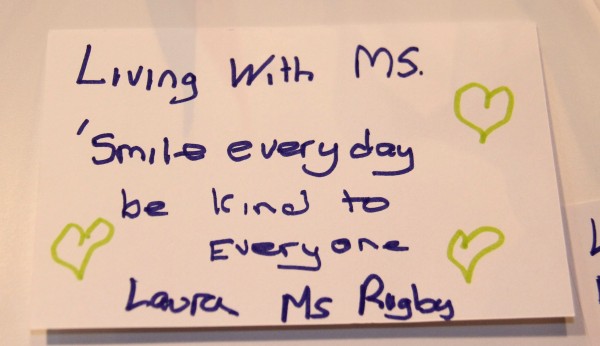 Living With MS.
'Smile everyday
be kind to
Everyone
Laura Ms Rugby